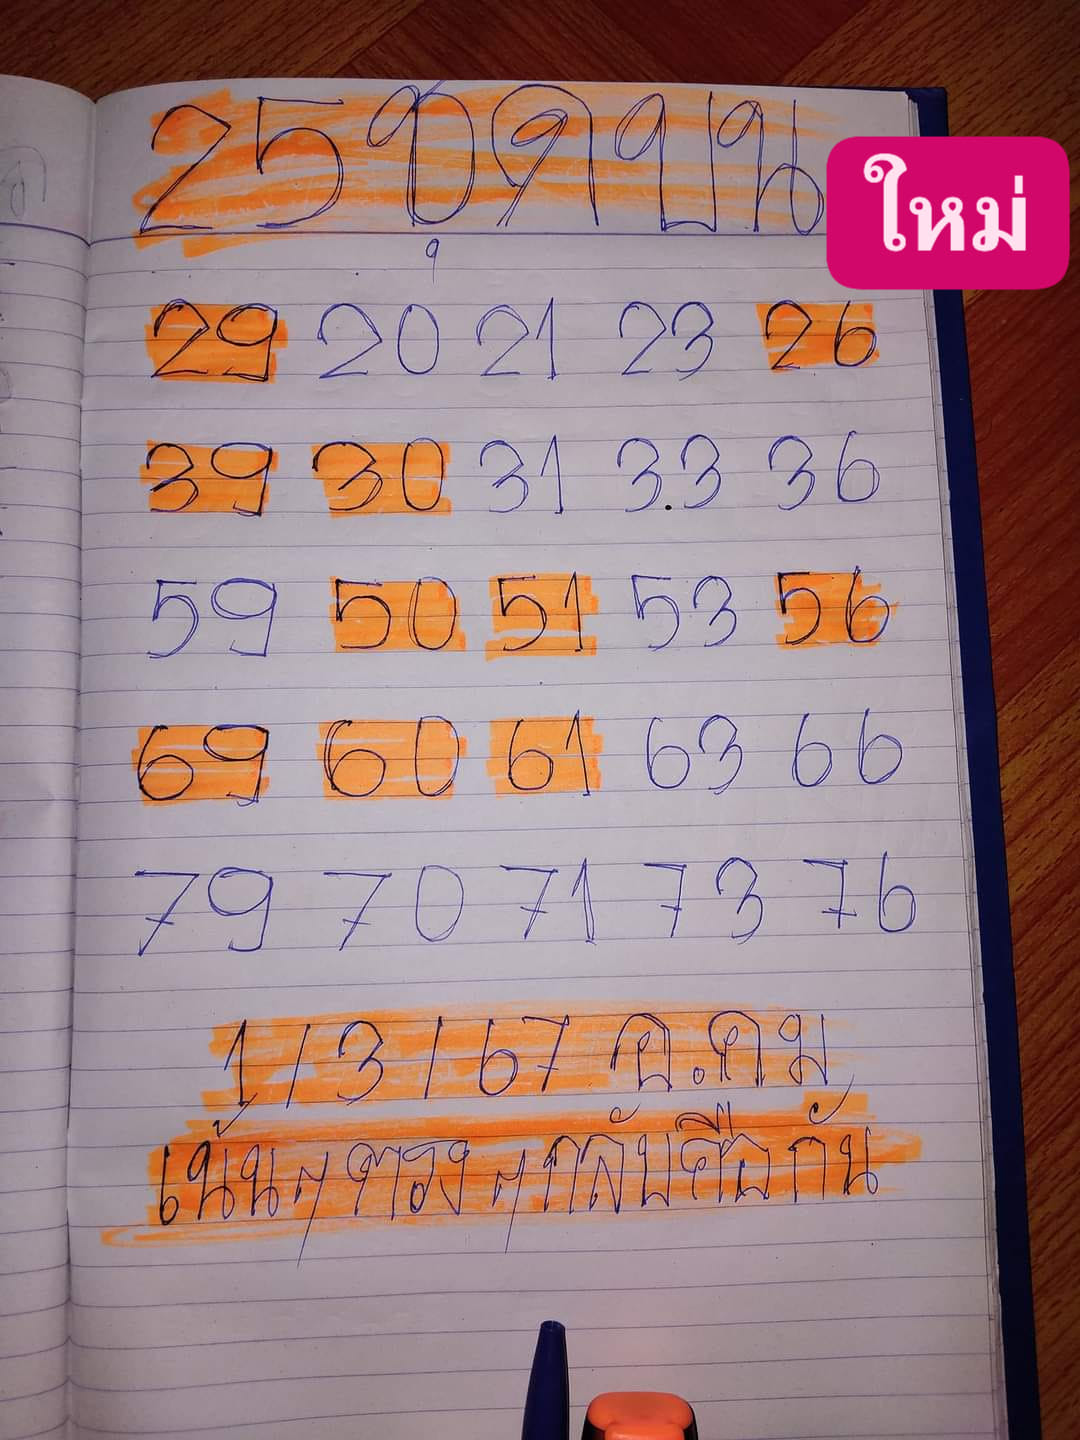 25 ชุดบน
ใหม่
29 20 21 23 26
39 30 31 3.3 36
59 50 51 53 56
69 60 61 63 66
79 70 71 73 76
1/3/67 อ.คม
เน้นๆตรงๆกลับคือกัน